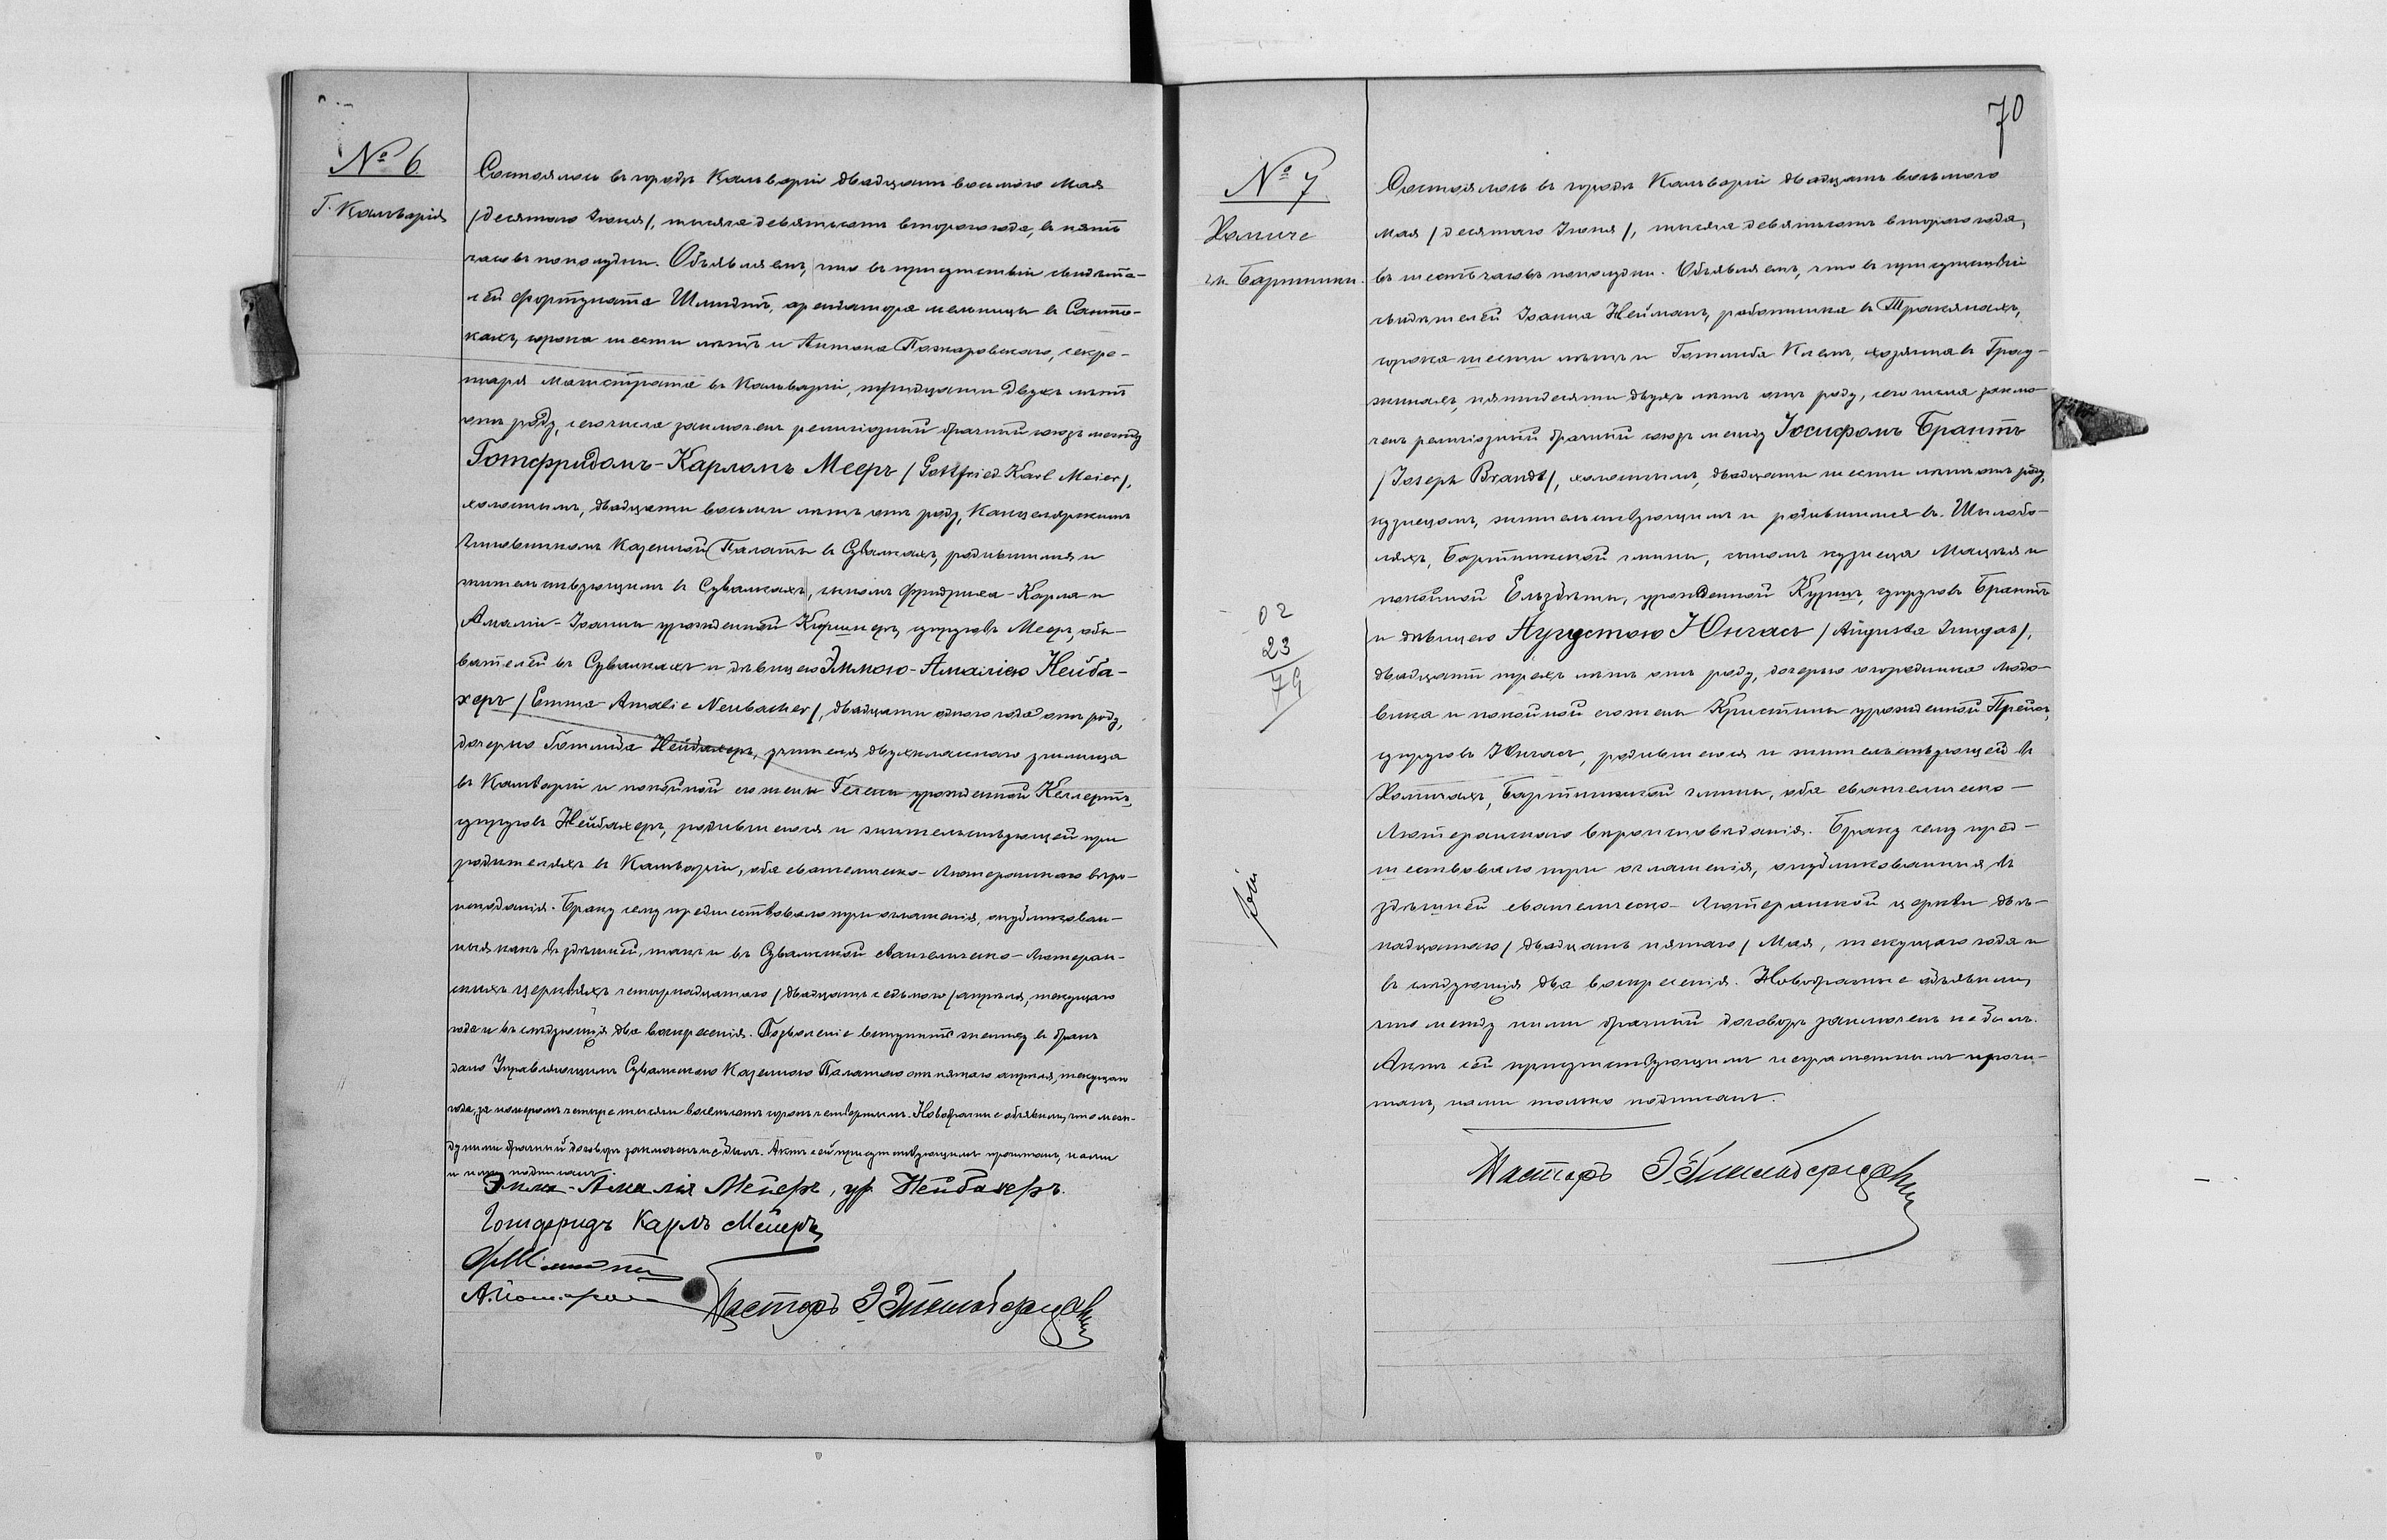 № 6
Г. Кальварія
Состоялось въ городѣ Кальваріи двадцать восьмого Мая
/десятаго Іюня/, тысяча девятьсотъ второго года, въ пять
часовъ пополудни. Объявляемъ, что въ присутствіи свидѣте-
лей Фортуната Шмидтъ, арендатора мельницы въ Санто-
кахъ, сорока шести лѣтъ и Антона Пожаровскаго, секре-
таря Магистрата въ Кальваріи, тридцати двухъ лѣтъ
отъ роду, сего числа заключенъ религіозный брачный союзъ между
Готфридомъ-Карломъ Мееръ /Gottfried Karl Meier/,
холостымъ, двадцати восьми лѣтъ отъ роду, Канцелярскимъ
Чиновникомъ Казенной Палаты въ Сувалкахъ, родившимся и
жительствующимъ въ Сувалкахъ, сыномъ Фридриха-Карла и
Амаліи-Іоанны урожденной Киршнеръ, супруговъ Мееръ, обы-
вателей въ Сувалкахъ и дѣвицею Эммою-Амаліею Нейба-
херъ /Emma Amalie Neubacher/, двадцати одного года отъ роду,
дочерью Готлиба Нейбахеръ, учителя двухкласснаго училища
въ Кальваріи и покойной его жены Гелены урожденной Келлертъ,
супруговъ Нейбахеръ, родившеюся и жительствующей при
родителяхъ въ Кальваріи, оба евангелическо-Лютеранскаго вѣро-
исповѣданія. Браку сему предшествовало три оглашенія, опубликован-
ныя какъ въ здѣшней, такъ и въ Сувалкской Евангелическо-Лютеран-
скихъ церквяхъ четырнадцатаго /двадцать седьмого/ апрѣля, текущаго
года и въ слѣдующія два воскресенія. Позволеніе вступить жениху въ бракъ
дано Управляющимъ Сувалкскою Казенною Палатою отъ пятаго апрѣля, текущаго
года, за номеромъ четыре тысячи восемьсотъ сорокъ четвертымъ. Новобрачные объявили, что меж-
ду ними брачный договоръ заключенъ не былъ. Актъ сей присутствующимъ прочитанъ, нами
и ими подписанъ.
Эмма-Амалія Мейеръ, ур. Нейбахеръ.
Готфридъ Карлъ Мейеръ
Ф Шмидтъ
Пасторъ Э.
70
№ 7
гм. Бартники.
02
23
79
Состоялось въ городѣ Кальваріи двадцать восьмого
Мая /десятаго Іюня/, тысяча девятьсотъ второго года,
въ шесть часовъ пополудни. Объявляемъ, что въ присутствіи
свидѣтелей Іоанна Нейманъ, работника въ Тракянахъ,
сорока шести лѣтъ и Готлиба Клемъ, хозяина въ Град-
жинахъ, пятидесяти двухъ лѣтъ отъ роду, сего числа заклю-
ченъ религіозный брачный союзъ между Іосифомъ Брантъ
/Joseph Brandt/, холостымъ, двадцати шести лѣтъ отъ роду,
кузнецомъ, жительствующимъ и родившимся въ Шилобо-
ляхъ, Бартникской гмины, сыномъ кузнеца Мацѣя и
покойной Ельзбѣты, урожденной Курицъ, супруговъ Брантъ
и дѣвицею Аугустою Юнгасъ /Augusta Jungas/,
двадцати трехъ лѣтъ отъ роду, дочерью огородника Людо-
вика и покойной его жены Кристины урожденной Прейсъ,
супруговъ Юнгасъ, родившеюся и жительствующей въ
Бартникской гмины, оба евангелическо-
Лютеранскаго вѣроисповѣданія. Браку сему пред-
шествовало три оглашенія, опубликованныя въ
здѣшней евангелическо-Лютеранской церкви двѣ-
надцатаго /двадцать пятаго/ Мая, текущаго года и
въ слѣдующія два воскресенія. Новобрачные объявили,
что между ними брачный договоръ заключенъ не былъ.
Актъ сей присутствующимъ неграмотнымъ прочи-
танъ, нами только подписанъ.
Пасторъ Э.